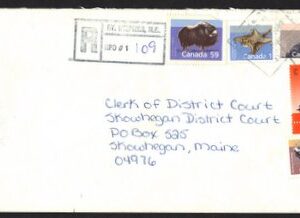 R
RPO #1 109
Canada 59
Canada 1
Clerk of District Court
Skowhegan District Court
PO Box 525
Skowhegan, Maine
04976